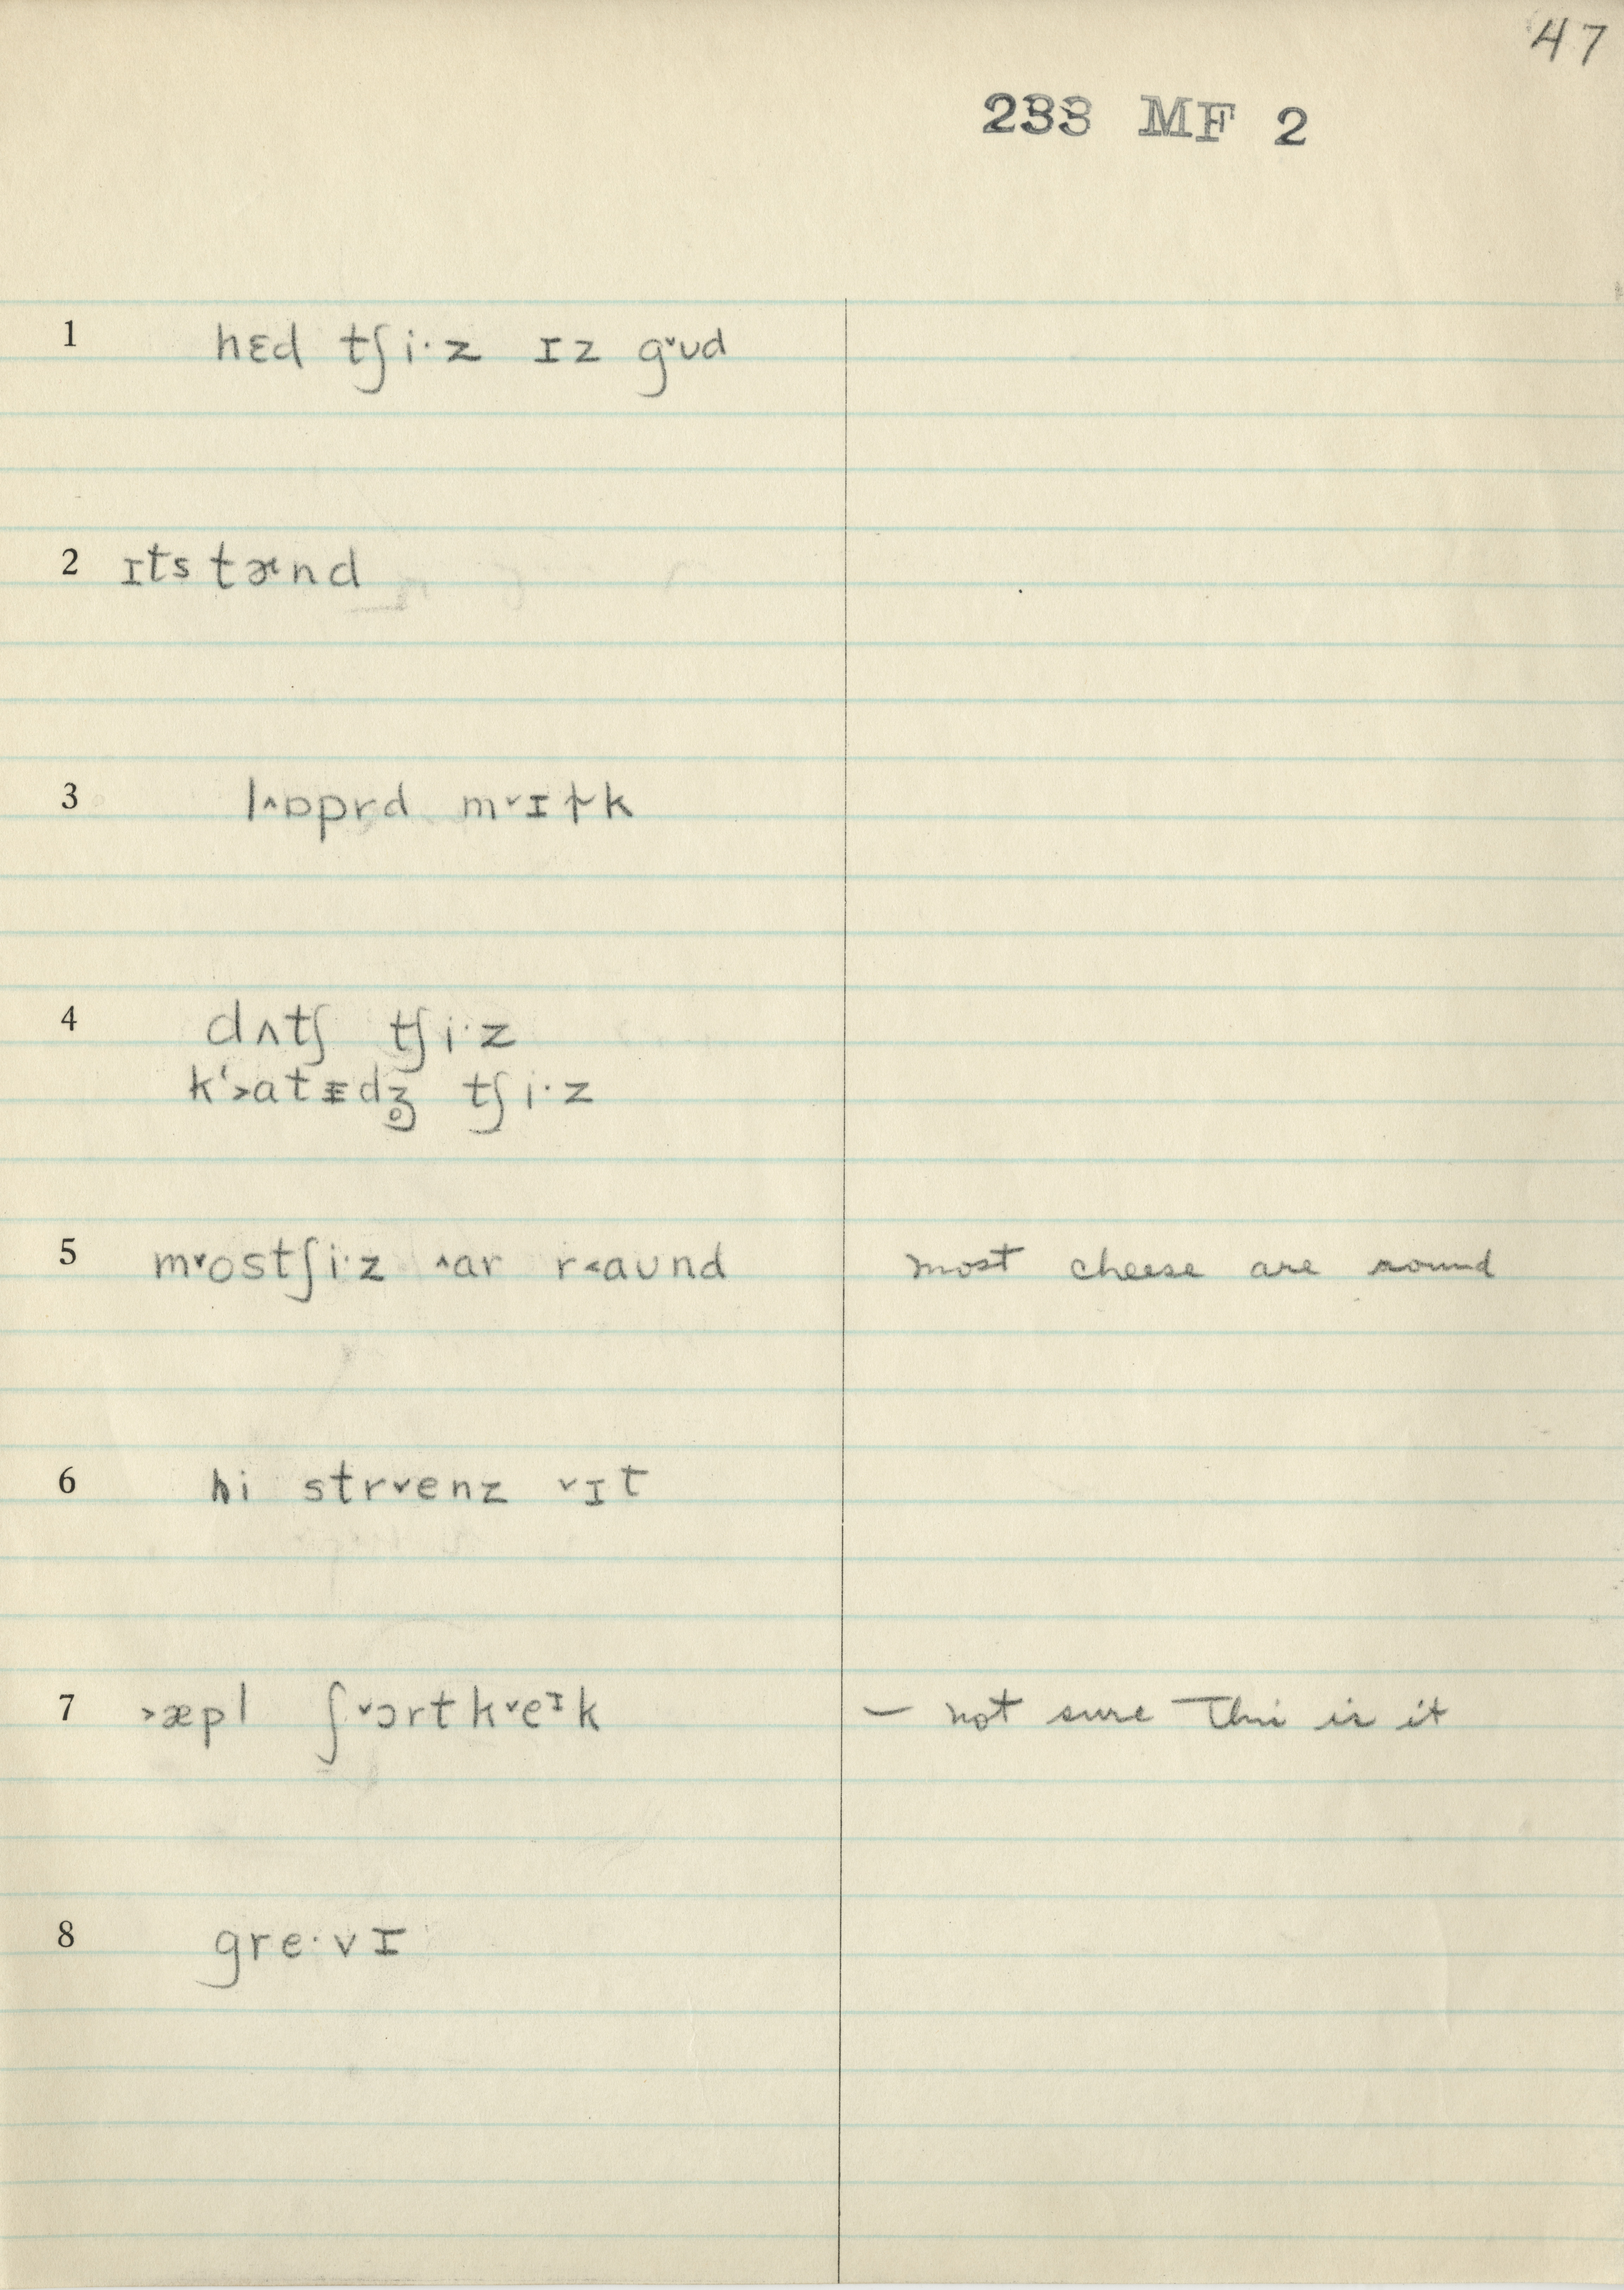 47
233 MF 2
1 hɛd tʃi·z ɪz g˅ud
2 ɪts tɚnd
3 l˄ɒprd m˅ɪɫk
4 dʌtʃ tʃi·z
kʻ˃atɪdʒ̥ tʃi·z
5 m˅ostʃi·z ˄ar r˂aund most cheese are round
6 hi str˅enz ˅ɪt
7 ˃æpl ʃ˅ɔrt k˅eᶦk – not sure this is it
8 gre·vɪ